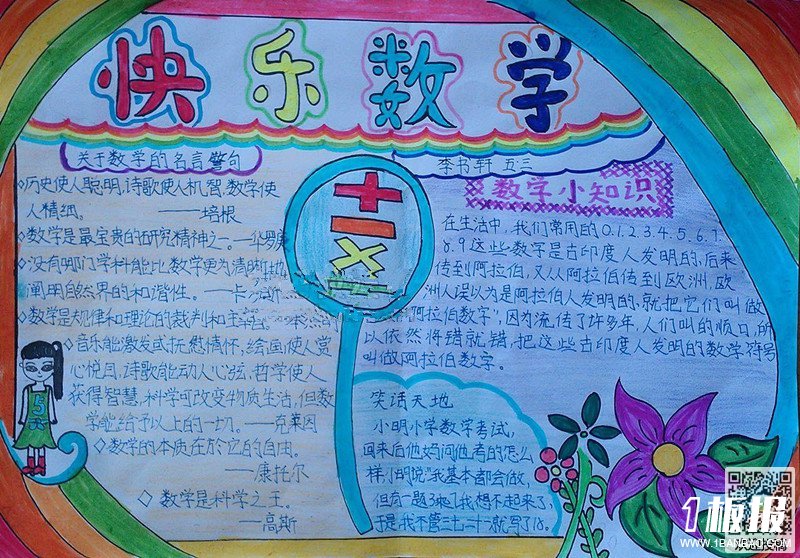 快乐数学
关于数学的名言警句
李书轩 五三
◇历史使人聪明,诗歌使人机智,数学使
人精细。 ——培根
◇数学是最宝贵的研究精神之一。—华罗庚
◇没有哪门学科能比数学更为清晰地
阐明自然界的和谐性。—卡洛斯
◇数学是规律和理论的裁判和主宰者。
◇音乐能激发或抚慰情怀,绘画使人赏
心悦目,诗歌能动人心弦,哲学使人
获得智慧,科学可改变物质生活,但数
学能给予以上的一切。——克莱因
◇数学的本质在於它的自由。
——康托尔
◇ 数学是科学之王。
——高斯
+
−
×
数学小知识
在生活中,我们常用的0.1.2.3.4.5.6.7.
8.9这些数字是古印度人发明的,后来
传到阿拉伯,又从阿拉伯传到欧洲,欧
洲人误以为是阿拉伯人发明的,就把它们叫做
“阿拉伯数字”,因为流传了许多年,人们叫的顺口,所
以依然将错就错,把这些古印度人发明的数学符号
叫做阿拉伯数字。
笑话天地
小明小学数学考试,
回来后他妈问他考的怎么
样,小明说“我基本都会做,
但有一题3乘7我想不起来了,
于是我不管三七二十一就写了18。
5
1板报
WWW.1BANBAO.COM